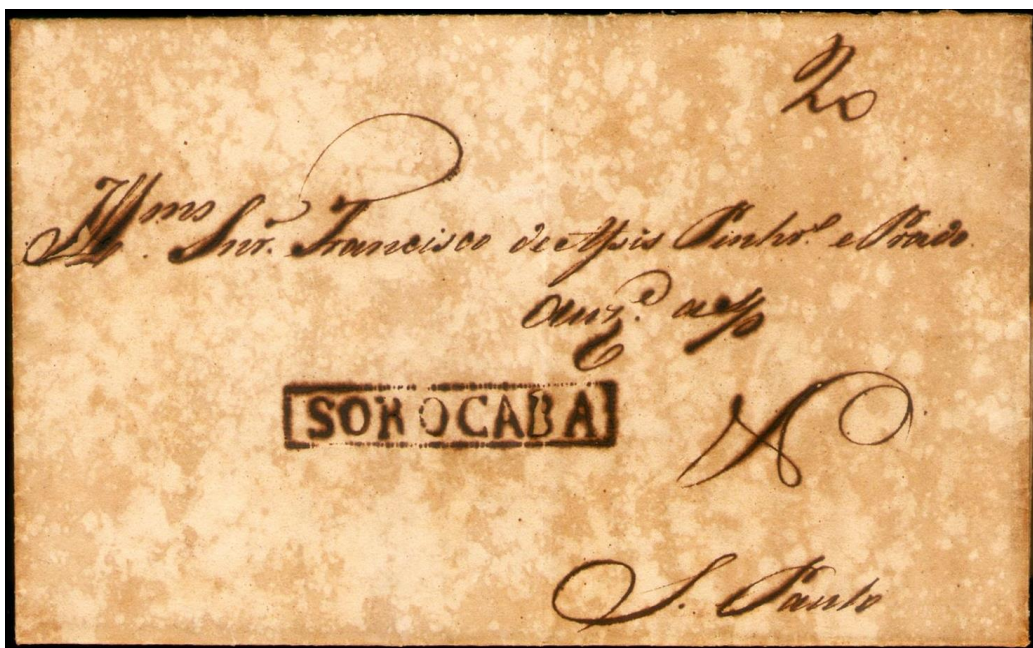 20
Illmo. Snr. Francisco de Assis Pinhro. e Prado
SOROCABA
S. Paulo